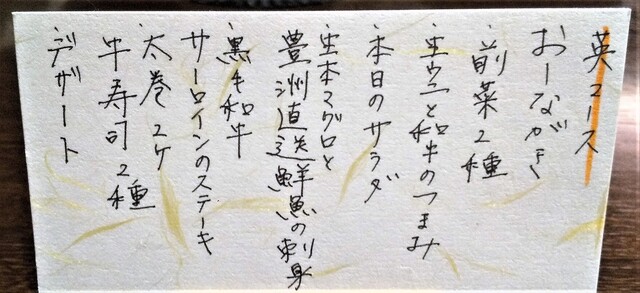 英コース
おーながき
・前菜2種
・生ウニと和牛のつまみ
・本日のサラダ
・生本マグロと
豊洲直送鮮魚の刺身
・黒毛和牛
サーロインのステーキ
・太巻2ケ
牛寿司2種
・デザート